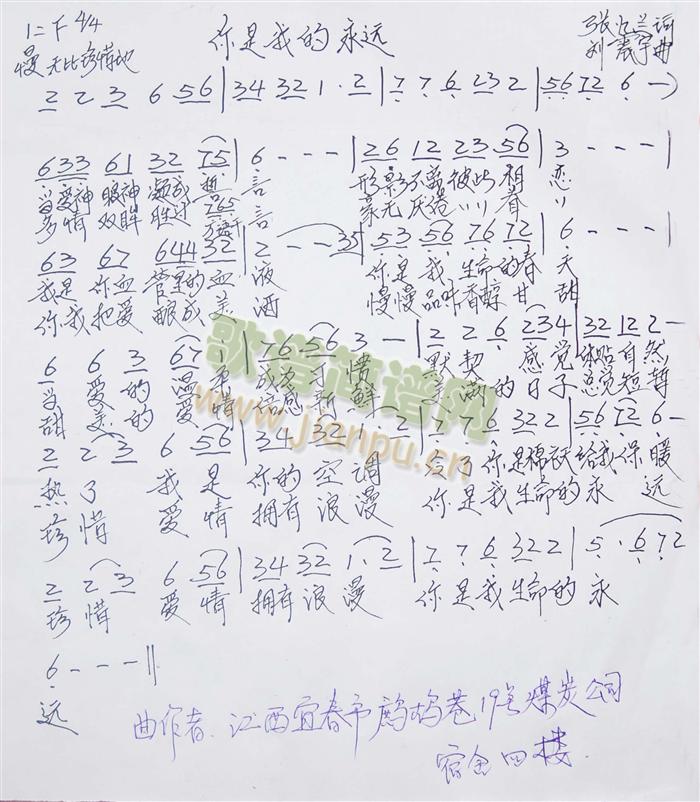 1=F 4/4 你是我的永远 张 兰词
慢 无比珍惜地 刘 曲
2 2 3 6 56 | 34 32 1 · 2 | 7 7 6 23 2 | 56 72 6 —)
633 61 32 75 | 6 - - - | 26 12 23 56 | 3 - - - |
当爱神 眼神 凝成 言 形影不离彼此 相 恋
多情 双眸 胜过 765 言 毫无厌倦 看
63 67 644 32 | 2 - - 35 | 53 56 76 72 | 6 - - - |
我是 你血 管里的 血 液 你是 我 生命的春 天
你我 把爱 酿成 美 酒 慢慢品味香醇 甘 甜
6 6 3 67 | 76 56 3 — | 2 2 6 234 | 32 12 2 —
当 爱 的 温 成为 习 惯 默 契 感觉 体贴自然
甜 美 的 爱 情 感 新 鲜 满 的 日子 总觉短暂
2 2 3 6 56 | 34 32 1 · 2 | 7 7 6 32 2 | 56 72 6 —
热 了 我 是 你的 空 调 冷了 你是棉袄给我保 暖
珍 惜 爱 情 拥有 浪 漫 你是我生命的永 远
2 2 3 6 56 | 34 32 1 · 2 | 7 7 6 32 2 | 5 · 6 72
珍 惜 爱 情 拥有 浪 漫 你 是 我 生命的 永
6 - - - ||
远
歌谱简谱网
www.jianpu.cn
曲作者. 江西宜春市鹧鸪巷19号煤炭公司
宿舍四楼.